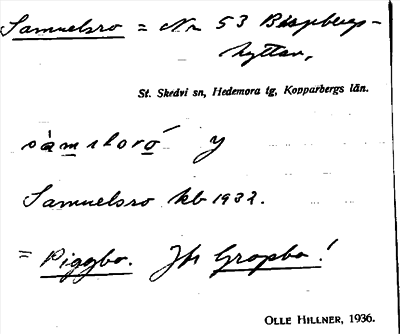 Samuelsro = Nr 53 Bispbergs-
hyttan,
St. Skedvi sn, Hedemora tg, Kopparbergs län.
y
Samuelsro kb 1932.
= Piggbo. Jfr Gropbo!
OLLE HILLNER, 1936.